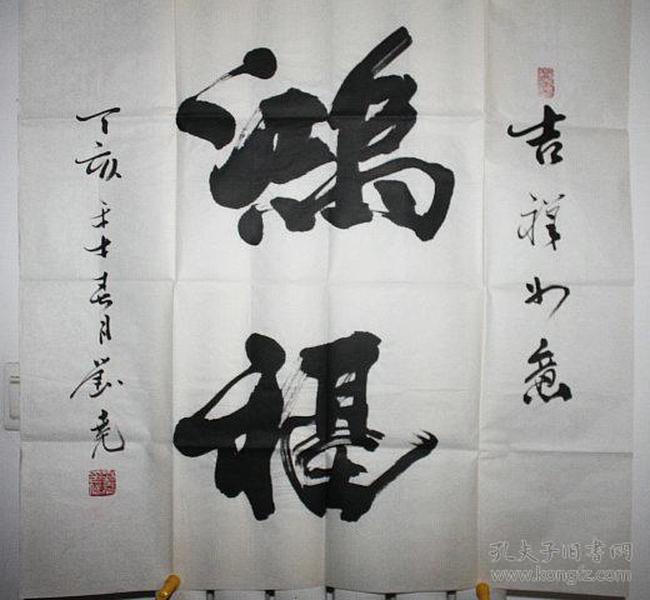 吉祥如意
鴻
丁亥年 春月
孔夫子旧书网
www.kongfz.com